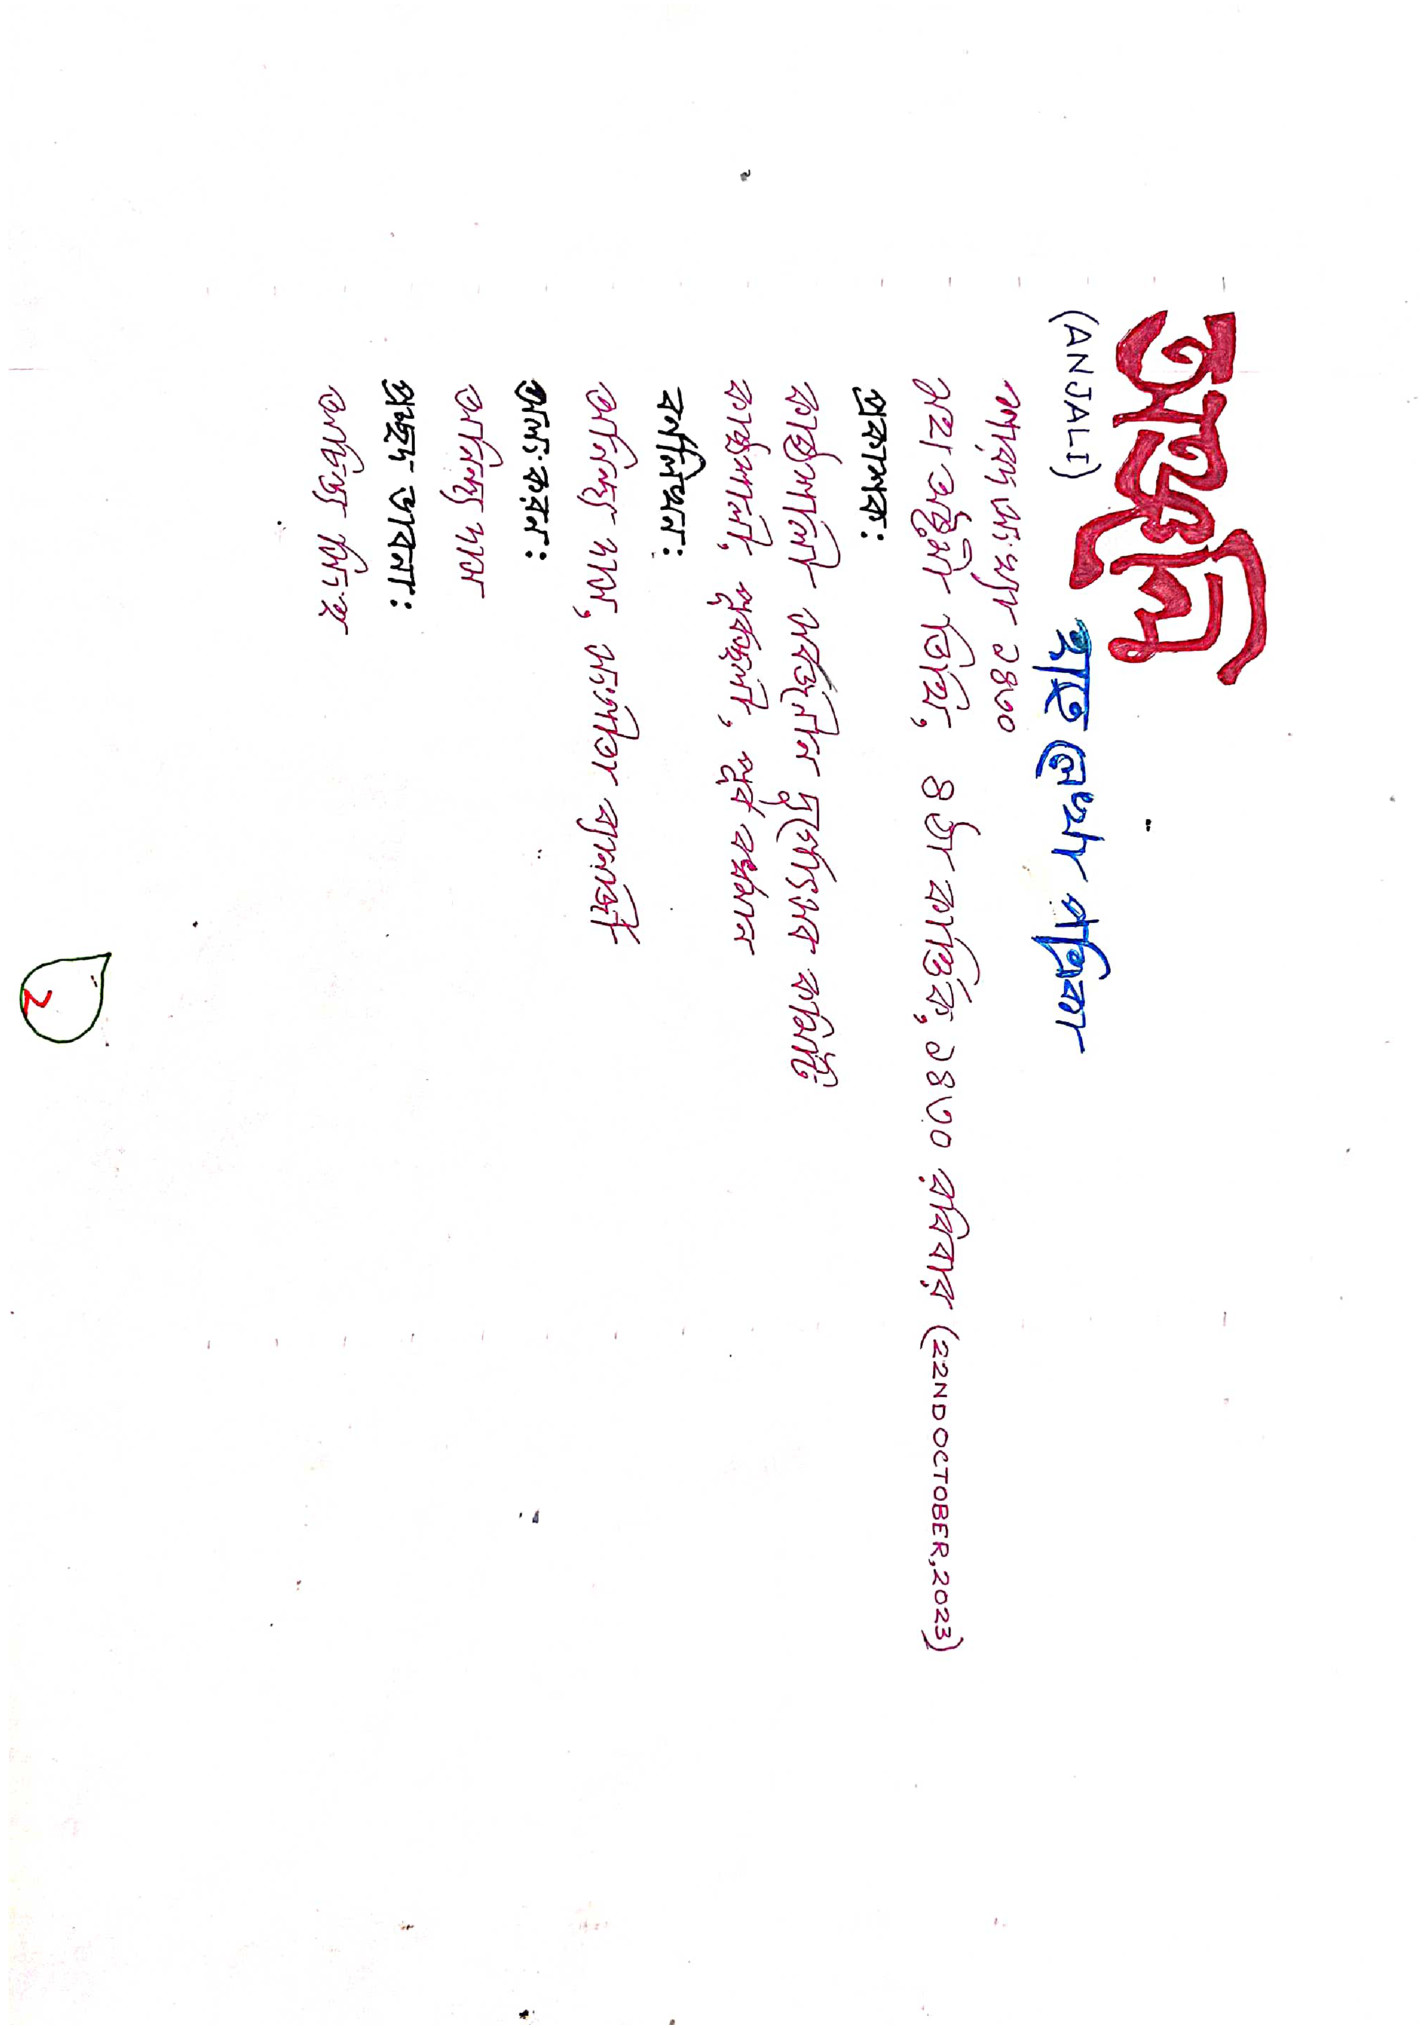 অঞ্জলি
(ANJALI) হাতে লেখা পত্রিকা
শারদ সংখ্যা ১৪৩০
মহা অষ্টমী তিথি, ৪ঠা কার্ত্তিক, ১৪৩০ রবিবার (22ND OCTOBER, 2023)
প্রকাশক:
কাষ্ঠশালী সার্বজনীন দুর্গোৎসব কমিটি
কাষ্ঠশালী, পূর্বস্থলী, পূর্ব বর্ধমান
বর্ণলিখন:
অনিন্দ্য দাস,
অলংকরন:
অনিন্দ্য দাস
প্রচ্ছদ ভাবনা:
২